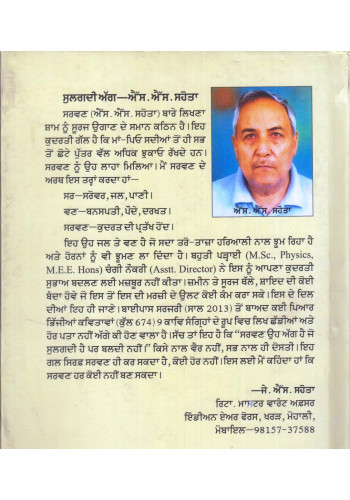 ਸੁਲਗਦੀ ਅੱਗ—ਐੱਸ.ਐੱਸ.ਸਹੋਤਾ
ਸਰਵਣ (ਐੱਸ.ਐੱਸ.ਸਹੋਤਾ) ਬਾਰੇ ਲਿਖਣਾ
ਸ਼ਾਮ ਨੂੰ ਸੂਰਜ ਉਗਾਣ ਦੇ ਸਮਾਨ ਕਠਿਨ ਹੈ। ਇਹ
ਕੁਦਰਤੀ ਗੱਲ ਹੈ ਕਿ ਮਾਂ-ਪਿਓ ਸਦੀਆਂ ਤੋਂ ਹੀ ਸਭ
ਤੋਂ ਛੋਟੇ ਪੁੱਤਰ ਵੱਲ ਅਧਿਕ ਝੁਕਾਓ ਰੱਖਦੇ ਹਨ।
ਸਰਵਣ ਨੂੰ ਉਹ ਲਾਹਾ ਮਿਲਿਆ। ਮੈਂ ਸਰਵਣ ਦੇ
ਅਰਥ ਇਸ ਤਰ੍ਹਾਂ ਕਰਦਾ ਹਾਂ—
ਸਰ—ਸਰੋਵਰ, ਜਲ, ਪਾਣੀ।
ਵਣ—ਬਨਸਪਤੀ, ਪੌਦੇ, ਦਰਖਤ।
ਸਰਵਣ—ਕੁਦਰਤ ਦੀ ਪ੍ਰਤੱਖ ਹੋਂਦ।
ਐੱਸ.ਐੱਸ. ਸਹੋਤਾ
ਇਹ ਉਹ ਜਲ ਤੇ ਵਣ ਹੈ ਜੋ ਸਦਾ ਤਰੋ-ਤਾਜ਼ਾ ਹਰਿਆਲੀ ਨਾਲ ਝੂਮ ਰਿਹਾ ਹੈ
ਅਤੇ ਹੋਰਨਾਂ ਨੂੰ ਵੀ ਝੂਮਣ ਲਾ ਦਿੰਦਾ ਹੈ। ਬਹੁਤੀ ਪੜ੍ਹਾਈ (M.Sc., Physics,
M.E.E. Hons) ਚੰਗੀ ਨੌਕਰੀ (Asstt. Director) ਨੇ ਇਸ ਨੂੰ ਆਪਣਾ ਕੁਦਰਤੀ
ਸੁਭਾਅ ਬਦਲਣ ਲਈ ਮਜ਼ਬੂਰ ਨਹੀਂ ਕੀਤਾ। ਜ਼ਮੀਨ ਤੇ ਸੂਰਜ ਥੱਲੇ, ਸ਼ਾਇਦ ਦੀ ਕੋਈ
ਬੰਦਾ ਹੋਵੇ ਜੋ ਇਸ ਤੋਂ ਇਸ ਦੀ ਮਰਜ਼ੀ ਦੇ ਉਲਟ ਕੋਈ ਕੰਮ ਕਰਾ ਸਕੇ। ਇਸ ਦੇ ਦਿਲ
ਦੀਆਂ ਇਹ ਹੀ ਜਾਣੇ। ਬਾਈਪਾਸ ਸਰਜਰੀ (ਸਾਲ 2013) ਤੋਂ ਬਾਅਦ ਕਈ ਪਿਆਰ
ਭਿੱਜੀਆਂ ਕਵਿਤਾਵਾਂ (ਕੁੱਲ 674) 9 ਕਾਵਿ ਸੰਗ੍ਰਿਹਾਂ ਦੇ ਰੂਪ ਵਿਚ ਲਿਖ ਛੱਡੀਆਂ ਅਤੇ
ਹੋਰ ਪਤਾ ਨਹੀਂ ਅੱਗੇ ਕੀ ਹੋਣ ਵਾਲਾ ਹੈ। ਸੱਚ ਤਾਂ ਇਹ ਹੈ ਕਿ "ਸਰਵਣ ਉਹ ਅੱਗ ਹੈ ਜੋ
ਸੁਲਗਦੀ ਹੈ ਪਰ ਬਲਦੀ ਨਹੀਂ।" ਕਿਸੇ ਨਾਲ ਵੈਰ ਨਹੀਂ, ਸਭ ਨਾਲ ਹੀ ਦੋਸਤੀ। ਇਹ
ਗਲ ਸਿਰਫ਼ ਸਰਵਣ ਹੀ ਕਰ ਸਕਦਾ ਹੈ, ਕੋਈ ਹੋਰ ਨਹੀਂ। ਇਸ ਲਈ ਮੈਂ ਕਹਿੰਦਾ ਹਾਂ ਕਿ
ਸਰਵਣ ਹਰ ਕੋਈ ਨਹੀਂ ਬਣ ਸਕਦਾ।
—ਜੇ. ਐੱਸ. ਸਹੋਤਾ
ਰਿਟਾ. ਮਾਸਟਰ ਵਾਰੰਟ ਅਫ਼ਸਰ
ਇੰਡੀਅਨ ਏਅਰ ਫੋਰਸ, ਖਰੜ, ਮੋਹਾਲੀ,
ਮੋਬਾਇਲ—98157-37588